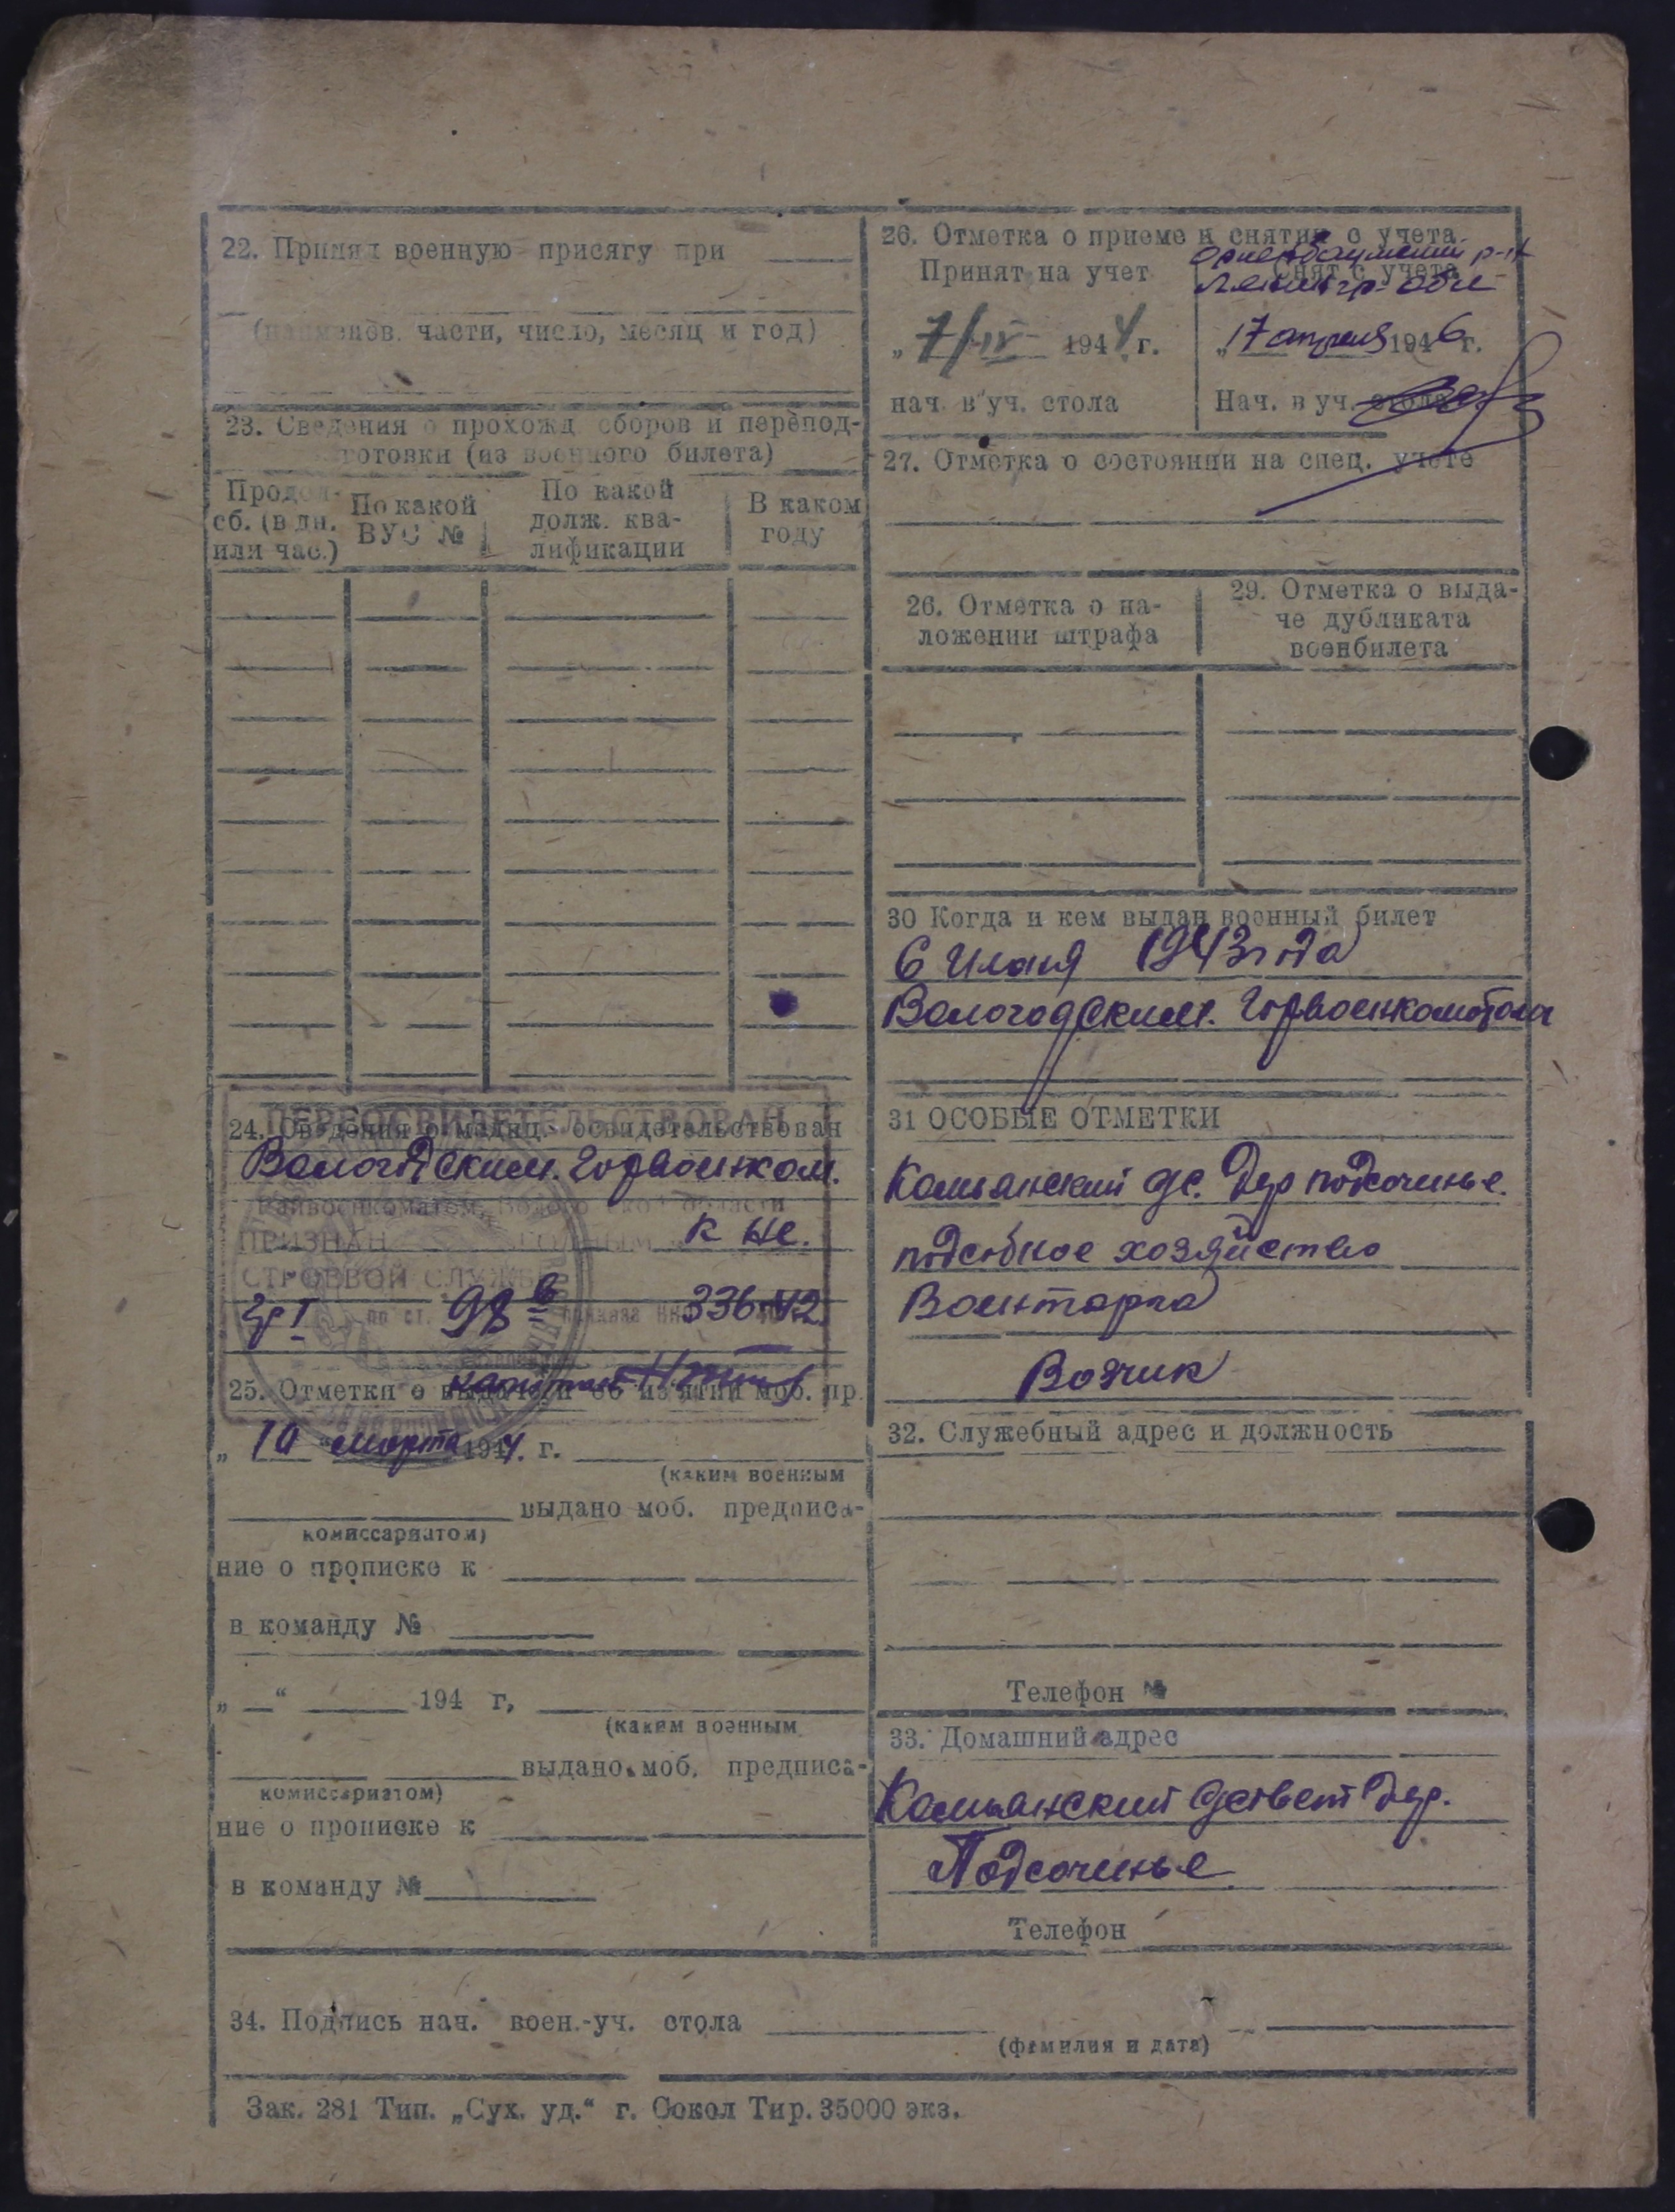 22. Принял военную присягу при
(наименов. части, число, месяц и год)
23. Сведения о прохожд сборов и перепод-
готовки (из военного билета)
Продол-
сб. (в дн.
или час.)
По какой
ВУС №
По какой
долж. ква-
лификации
В каком
году
ПЕРЕОСВИДЕТЕЛЬСТВОВАН
24. Сведения о медиц. освидетельствован
Вологодским. Горвоенком.
Райвоенкоматом, Вологодской области
ПРИЗНАН ГОДНЫМ к не.
СТРОЕВОЙ СЛУЖБЕ
гр I по ст. 98 в приказа НКО 336-42
капитан
25. Отметки о выдаче и об изъятии моб. пр.
„10 “ марта 1944. г.
(каким военным
выдано моб. предписа-
комиссариатом)
ние о прописке к
в команду №
„ “ 194 г,
(каким военным
выдано моб. предписа-
комиссариатом)
ние о прописке к
в команду №
26. Отметка о приеме и снятии с учета
Принят на учет
„7/IV 1944 г.
нач в уч. стола
Ораниенбаумский р-н
Снят с учета
Ленингр-обл
„17 апреля 1946 г.
Нач. в уч. стола
27. Отметка о состоянии на спец. учете
26. Отметка о на-
ложении штрафа
29. Отметка о выда-
че дубликата
военбилета
30 Когда и кем выдан военный билет
6 Июня 1943 года
Вологодским. Горвоенкоматом
31 ОСОБЫЕ ОТМЕТКИ
Комьянский с. Дер подсочинье.
подсобное хозяйство
Военторга
Возчик
32. Служебный адрес и должность
Телефон №
33. Домашний адрес
Комьянский Дер.
Подсочинье
Телефон
34. Подпись нач. воен.-уч. стола
(фамилия и дата)
Зак. 281 Тип. „Сух. уд.“ г. Сокол Тир. 35000 экз.